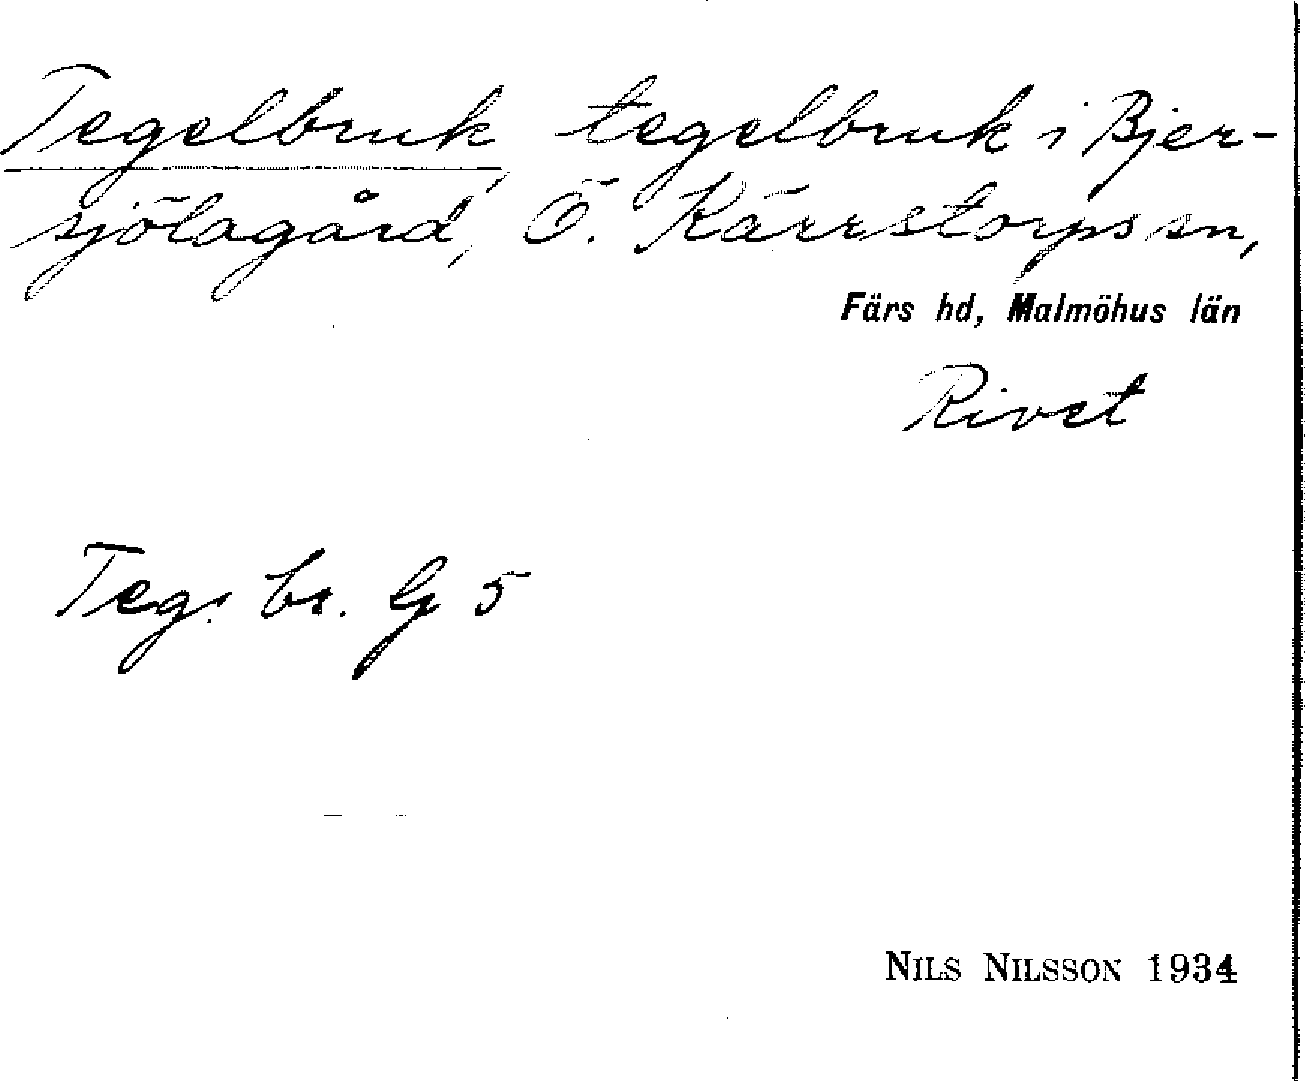 Tegelbruk, tegelbruk i Bjer-
sjölagård, Ö. Kärrstorps sn,
Färs hd, Malmöhus län
Rivet
Teg. br. G 5
NILS NILSSON 1934